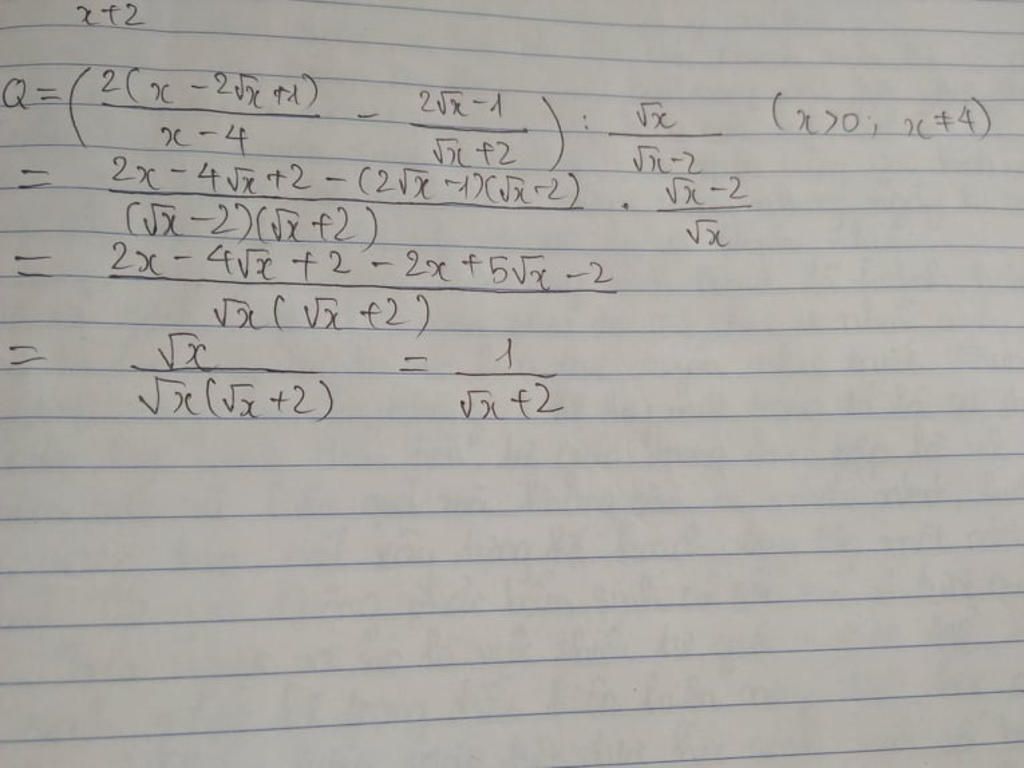 x+2
Q = ( 2(x - 2√x + 1) / x - 4 - 2√x - 1 / √x + 2 ) : √x / √x - 2 (x > 0; x ≠ 4)
= 2x - 4√x + 2 - (2√x - 1)(√x - 2) / (√x - 2)(√x + 2) . √x - 2 / √x
= 2x - 4√x + 2 - 2x + 5√x - 2 / √x(√x + 2)
= √x / √x(√x + 2) = 1 / √x + 2